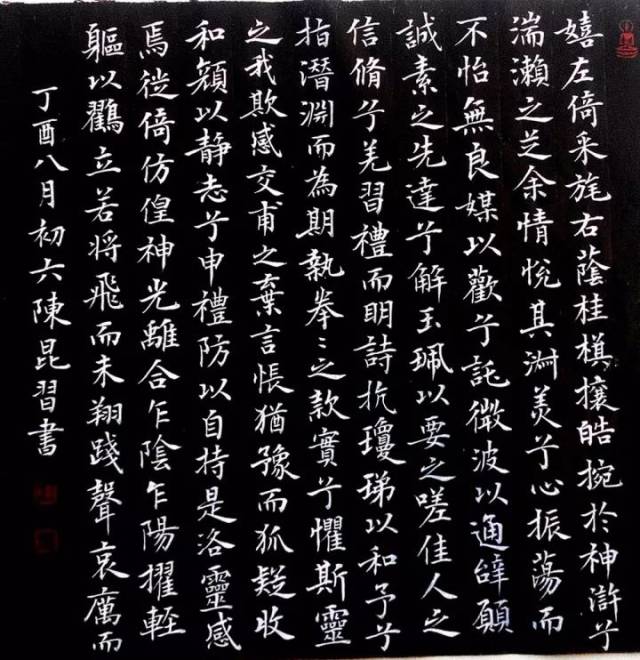 嬉左倚采旄右蔭桂旗攘皓捥於神滸兮
湍瀨之芝余情悅其淑美兮心振蕩而
不怡無良媒以歡兮託微波以通辭願
誠素之先達兮解玉珮以要之嗟佳人之
信脩兮羌習禮而明詩抗瓊珶以和予兮
指潛淵而為期執拳〻之款實兮懼斯靈
之我欺感交甫之棄言悵猶豫而狐疑收
和顏以靜志兮申禮防以自持是洛靈感
焉徙倚仿偟神光離合乍陰乍陽擢輕
軀以鸖立若將飛而未翔踐聲哀厲而
丁酉八月初六陳昆習書